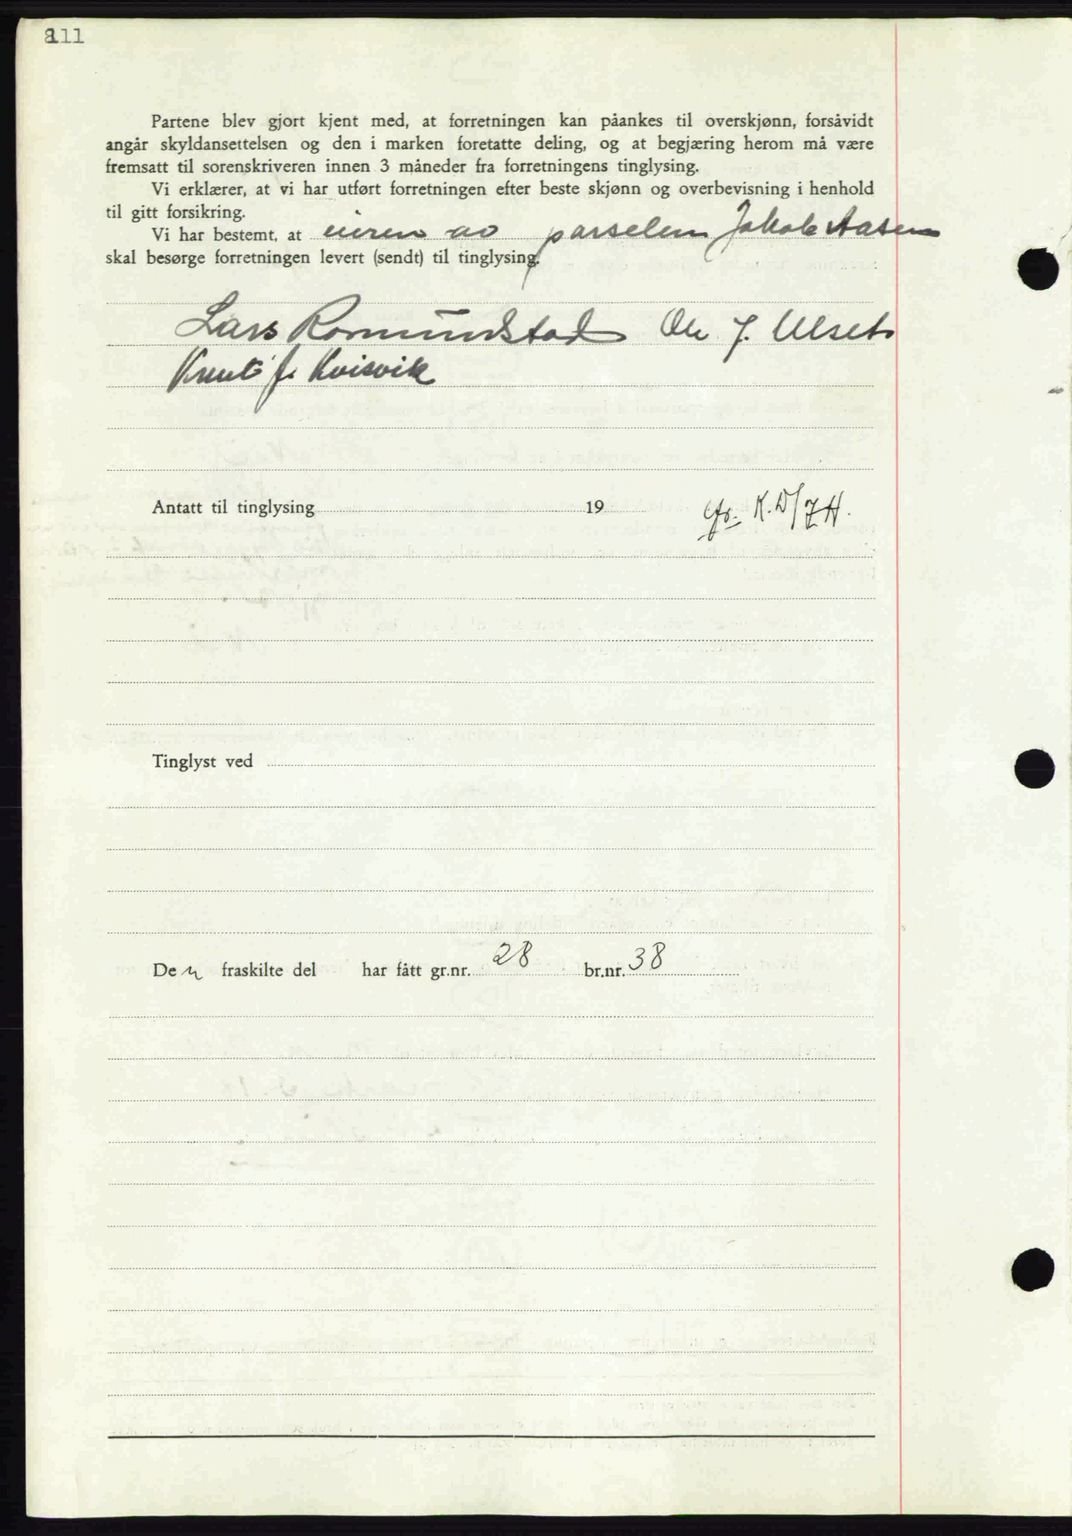 Partene blev gjort kjent med, at forretningen kan påankes til overskjønn, forsåvidt
angår skyldansettelsen og den i marken foretatte deling, og at begjæring herom må være
fremsatt til sorenskriveren innen 3 måneder fra forretningens tinglysing.
Vi erklærer, at vi har utført forretningen efter beste skjønn og overbevisning i henhold
til gitt forsikring.
Vi har bestemt, at eieren av parselen Jakob Aasen
skal besørge forretningen levert (sendt) til tinglysing.
Lars Romundstad Ole J. Ulset
Knut J. Kvisvik
Antatt til tinglysing 19
Tinglyst ved
Den fraskilte del har fått gr.nr. 28 br.nr. 38